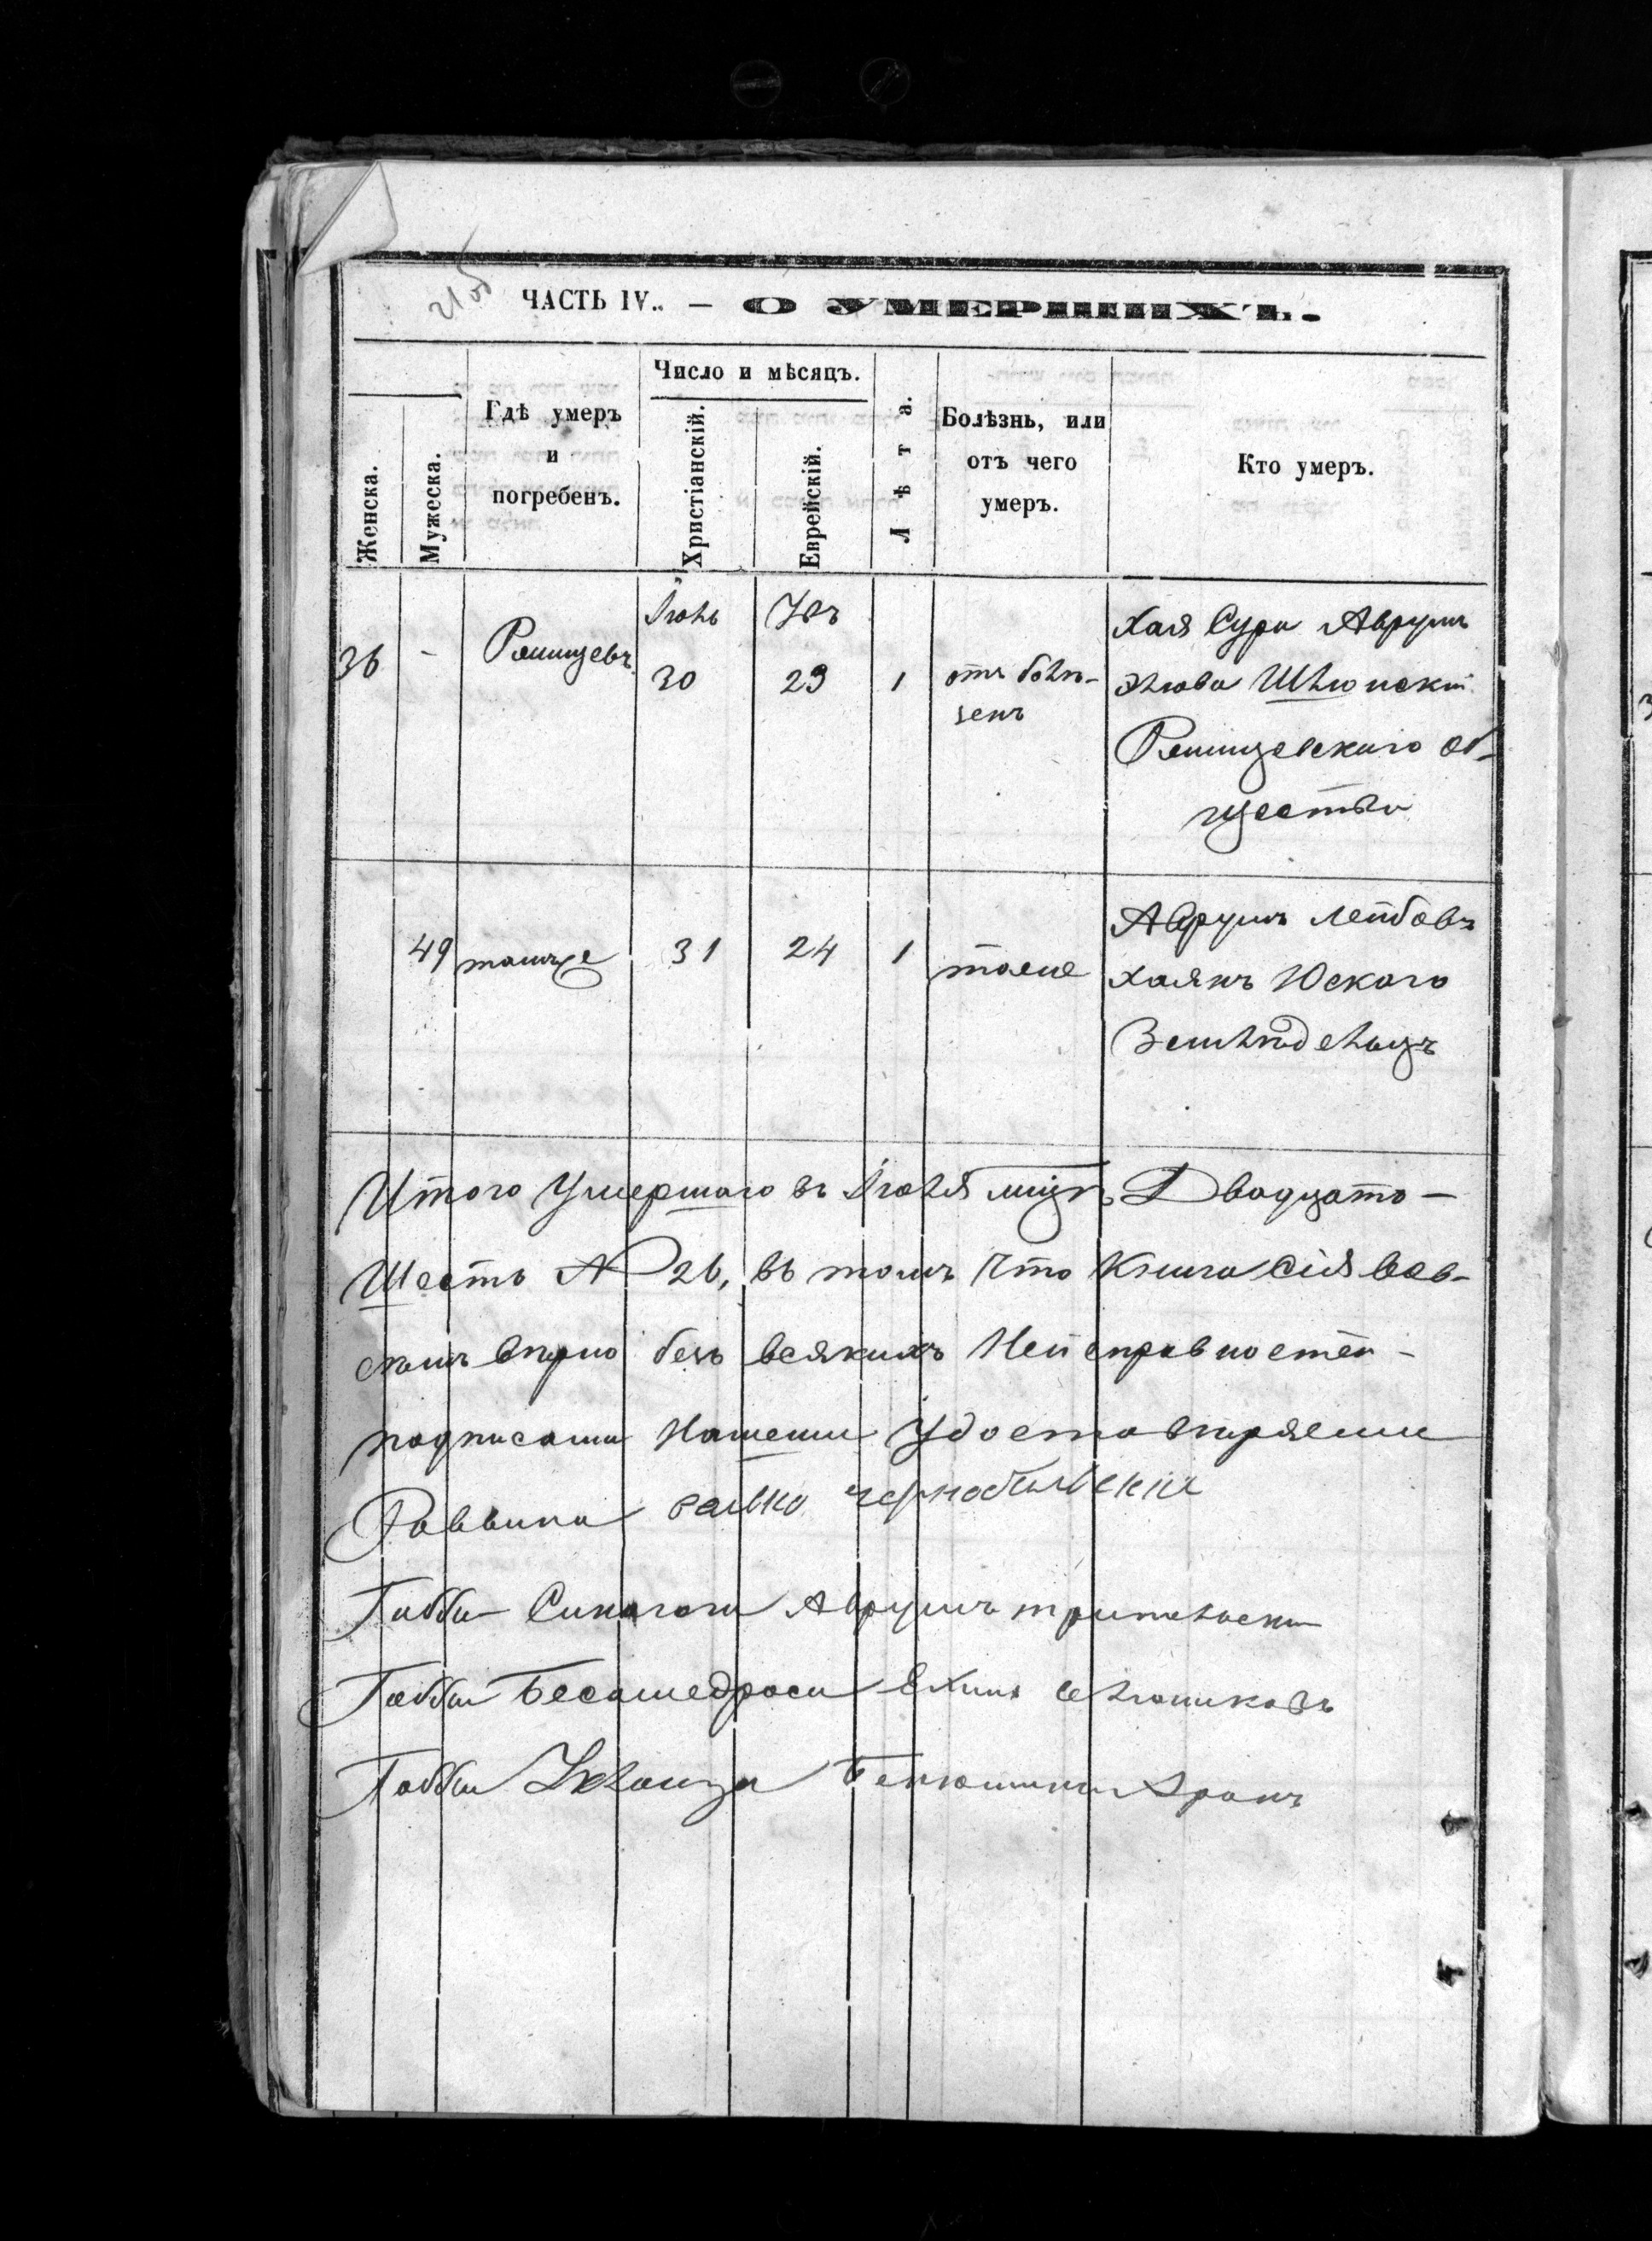 21об
ЧАСТЬ IV.. — О УМЕРШИХЪ.
Женска.
Мужеска.
Гдѣ умеръ
и
погребенъ.
Число и мѣсяцъ.
Христіанскій.
Еврейскій.
Лѣта.
Болѣзнь, или
отъ чего
умеръ.
Кто умеръ.
Іюль
36 - Ржищевъ 30 23 1 отъ болѣ-
зенъ
Хая Сура Аврумъ
Ржищевскаго об-
щества
49 тамъже 31 24 1 тоже
Аврумъ Лейбовъ
Хаянъ
Земледелецъ
Итого Умершаго въ Іюля мцѣ Двадцать —
Шесть № 26, въ томъ что Книга Сія Сов-
семъ вѣрно безъ всякихъ Неисправностей -
подписами Нашеми Удостовѣряеми
Раввина чернобильскій
Габбаи Синагоги Аврумъ
Габбаи Бесамедраси
Габбаи